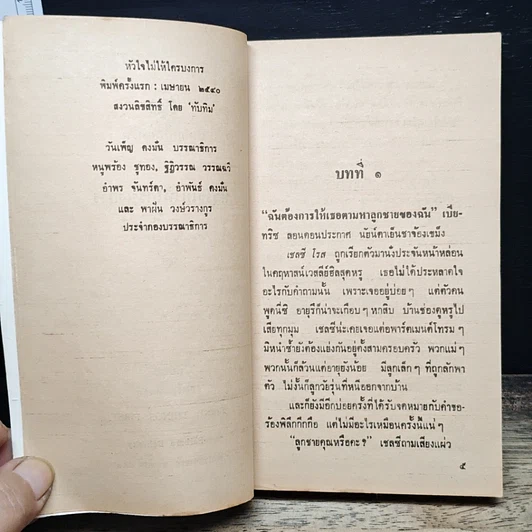 หัวใจไม่ให้ใครบงการ
พิมพ์ครั้งแรก : เมษายน ๒๕๔๐
สงวนลิขสิทธิ์ โดย 'ทับทิม'
วันเพ็ญ คงมั่น บรรณาธิการ
หนูพร้อง ชูทอง, ฐิฏิวรรณ วรรณฉวี
อำพร จันทร์ดา, อำพันธ์ คงมั่น
และ พาฝัน วงษ์วรางกูร
ประจำกองบรรณาธิการ
บทที่ ๑
"ฉันต้องการให้เธอตามหาลูกชายของฉัน" เบีย-
ทริซ ลอนดอนประกาศ นัยน์ตาเย็นชาจ้องเขม็ง
เชลซี โรส ถูกเรียกตัวมานั่งประจันหน้าหล่อน
ในคฤหาสน์เวสลีย์ฮิลสุดหรู เธอไม่ได้ประหลาดใจ
อะไรกับคำถามนั้น เพราะเจออยู่บ่อยๆ แต่ตัวคน
พูดนี่ซิ อายุรึก็น่าจะเกือบๆ หกสิบ บ้านช่องดูหรูไป
เสียทุกมุม เชลซีน่ะเคยเจอแต่อพาร์ตเมนต์โทรมๆ
มิหนำซ้ำยังต้องแย่งกันอยู่ตั้งสามครอบครัว พวกแม่ๆ
พวกนั้นก็ล้วนแต่อายุยังน้อย มีลูกเล็กๆ ที่ถูกลักพา
ตัว ไม่งั้นก็ลูกวัยรุ่นที่หนีออกจากบ้าน
และก็ยังมีอีกบ่อยครั้งที่ได้รับจดหมายกับคำขอ-
ร้องพิลึกกึกกือ แต่ไม่มีอะไรเหมือนครั้งนี้แน่ๆ
"ลูกชายคุณหรือคะ?" เชลซีถามเสียงแผ่ว
๕